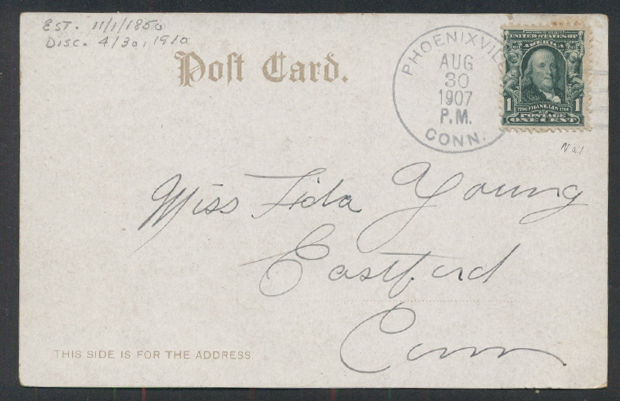 EST. 11/1/1850
DISC. 4/30, 1910
Post Card.
PHOENIXVIL
AUG
30
1907
P.M.
CONN.
UNITED STATES OF
AMERICA
1 1
POSTAGE
ONE CENT
Miss Lida Young
Eastford
Conn
THIS SIDE IS FOR THE ADDRESS